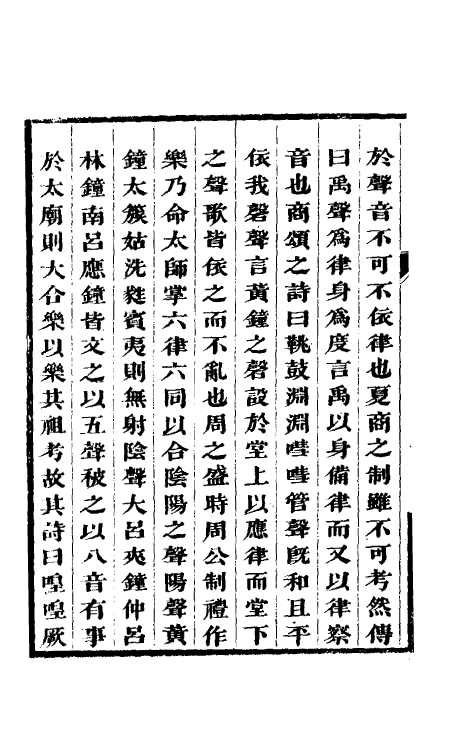 於聲音不可不依律也夏商之制雖不可考然傳
曰禹聲爲律身爲度言禹以身備律而又以律察
音也商頌之詩曰鞉鼓淵淵嘒嘒管聲旣和且平
依我磬聲言黃鐘之磬設於堂上以應律而堂下
之聲歌皆依之而不亂也周之盛時周公制禮作
樂乃命太師掌六律六同以合陰陽之聲陽聲黃
鐘太簇姑洗蕤賓夷則無射陰聲大呂夾鐘仲呂
林鐘南呂應鐘皆文之以五聲被之以八音有事
於太廟則大合樂以樂其祖考故其詩曰喤喤厥